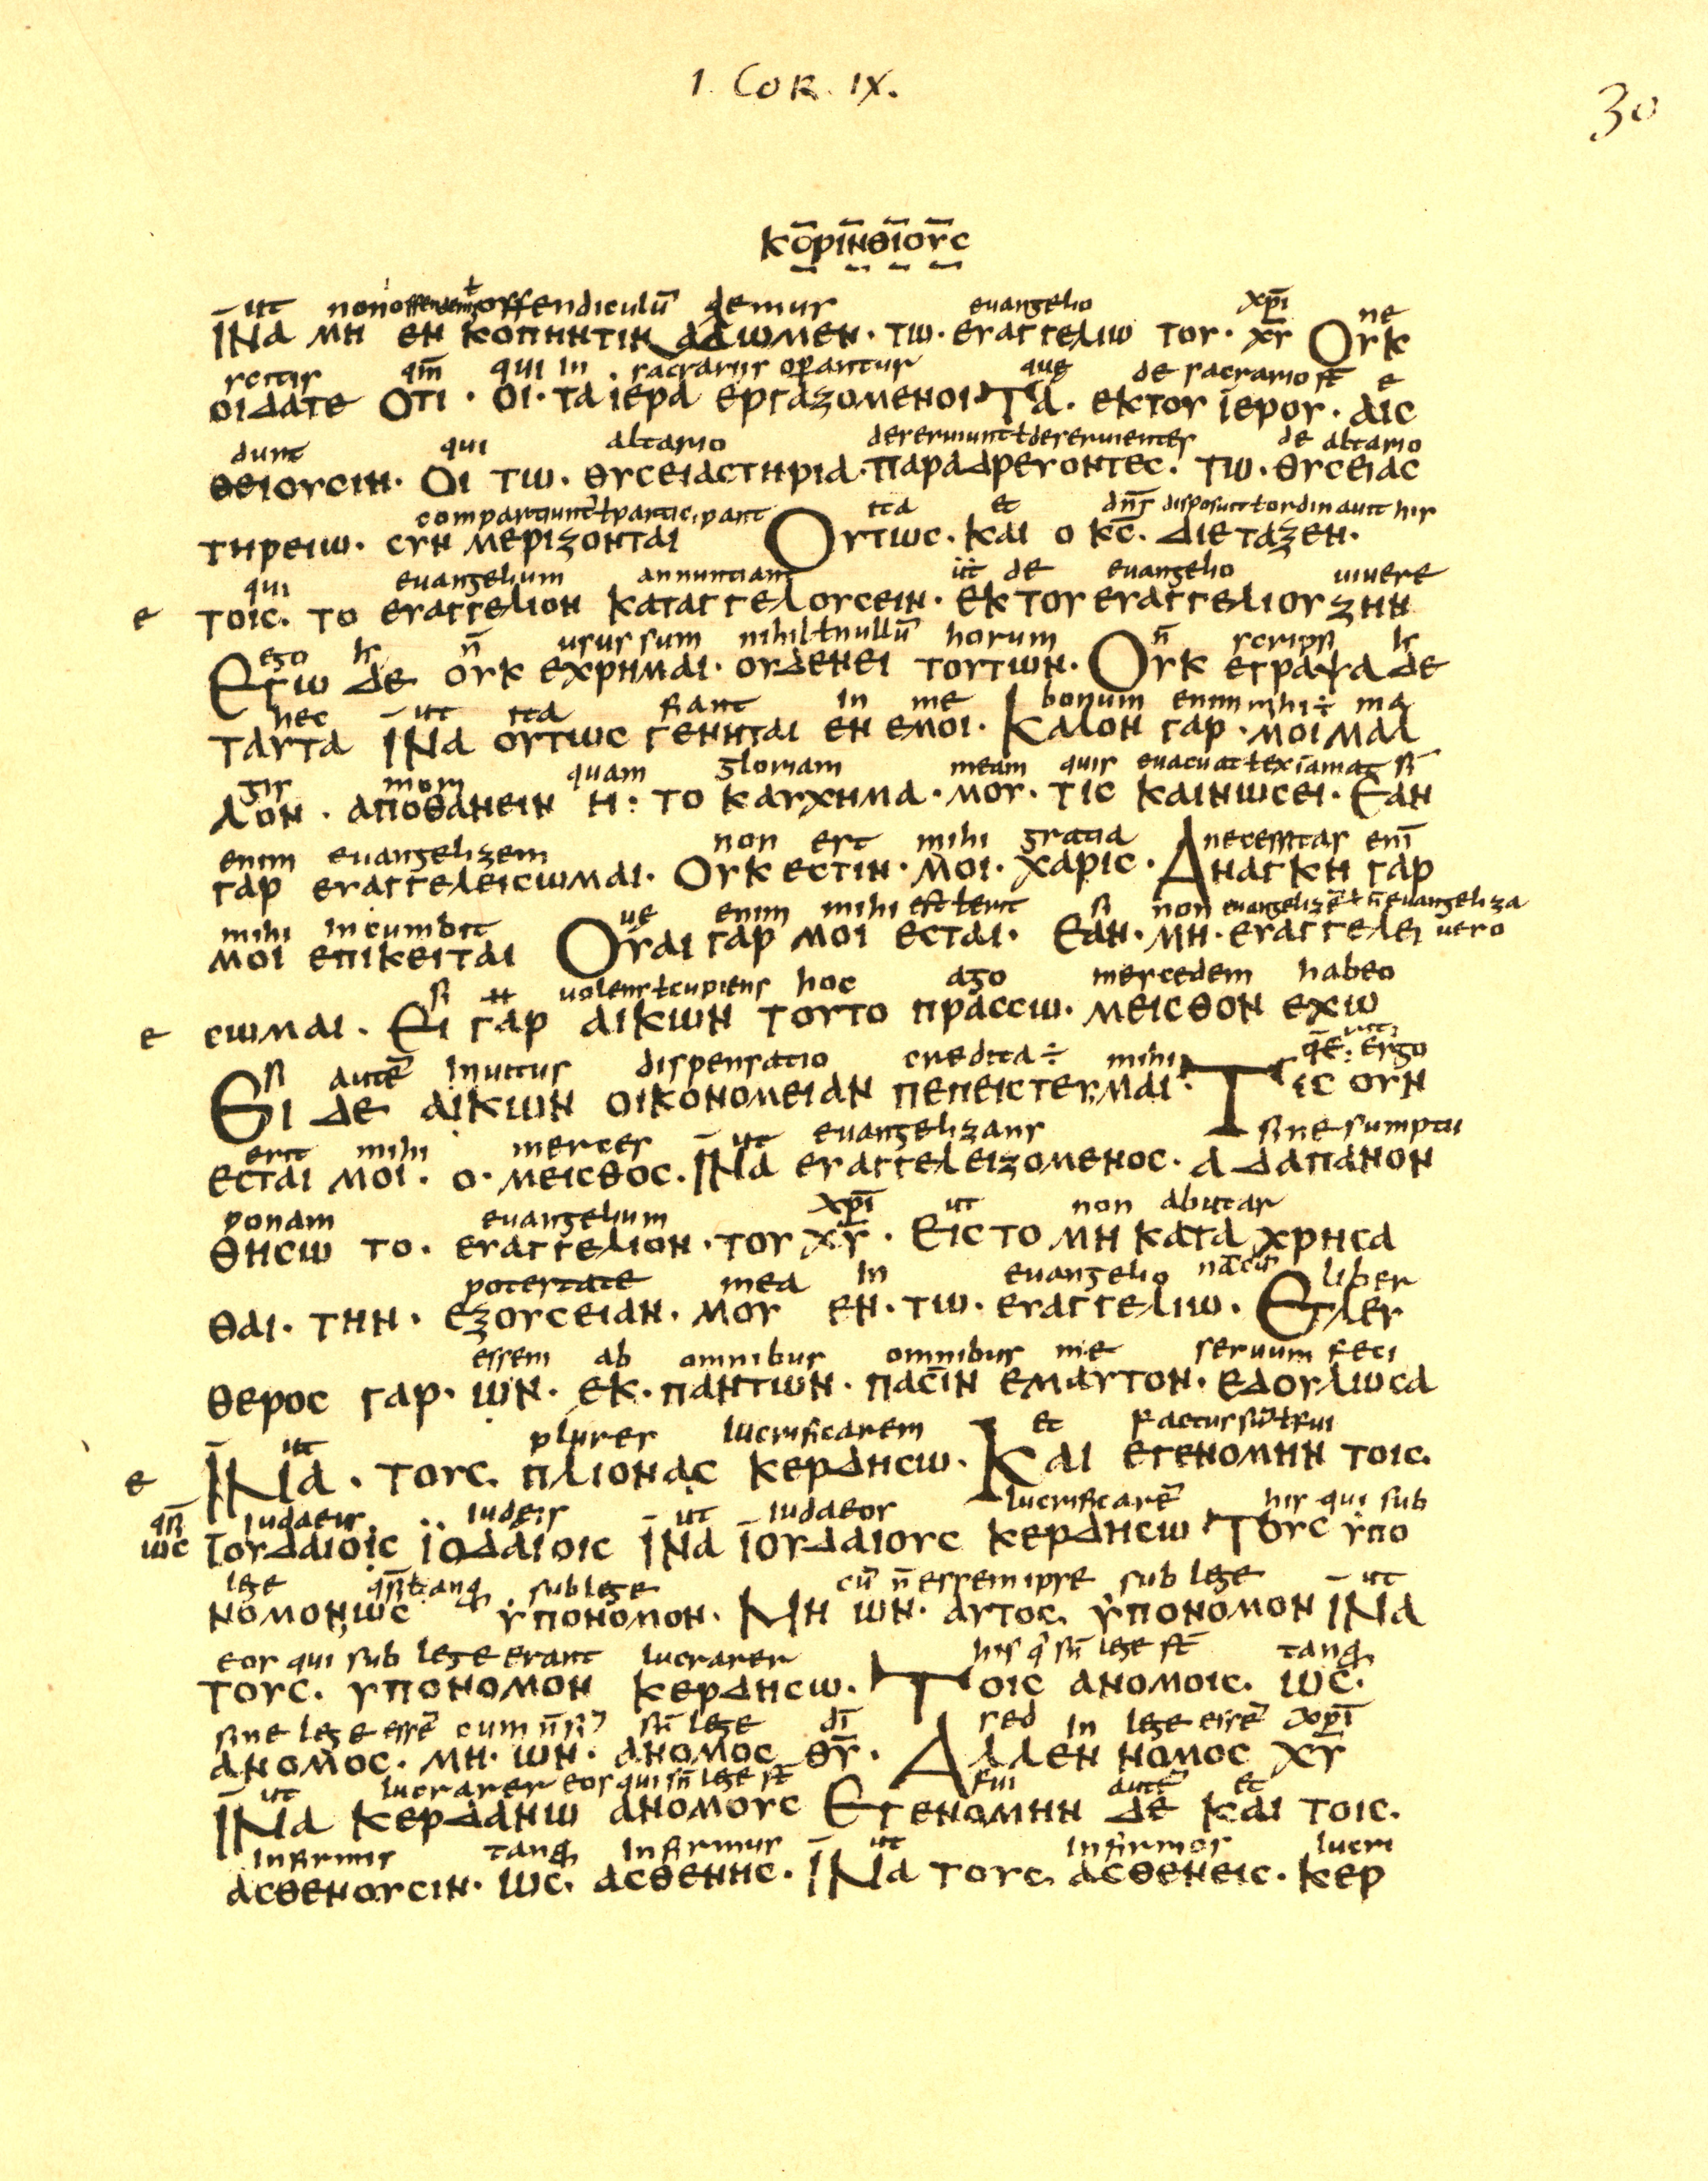 1. COR. IX.
30
ΚΟΡΙΝΘΙΟΥΣ
ut non offendiculū demus evangelio xpī ne
ΙΝΑ ΜΗ ΕΝΚΟΠΗΝΤΙΝ ΔΩΜΕΝ· ΤΩ· ΕΥΑΓΓΕΛΙΩ ΤΟΥ· ΧΥ ΟΥΚ
scitis qm̄ qui in sacrariis operantur que de sacrario st̄ e
ΟΙΔΑΤΕ ΟΤΙ · ΟΙ· ΤΑ ΙΕΡΑ ΕΡΓΑΖΟΜΕΝΟΙ ΤΑ· ΕΚ ΤΟΥ ΙΕΡΟΥ· ΑΙΣ
dunt qui altario deserviunt ł deservientes de altario
ΘΕΙΟΥΣΙΝ· ΟΙ ΤΩ· ΘΥΣΕΙΑΣΤΗΡΙΑ· ΠΑΡΑΔΡΕΥΟΝΤΕΣ· ΤΩ· ΘΥΣΕΙΑΣ
compartiunt' ł participant ita et dn̄s disposuit ł ordinavit his
ΤΗΡΕΙΩ· ΣΥΝ ΜΕΡΙΖΟΝΤΑΙ ΟΥΤΩΣ· ΚΑΙ Ο ΚΣ· ΔΙΕΤΑΞΕΝ·
qui evangelium annuntiant ut de evangelio vivere
e ΤΟΙΣ· ΤΟ ΕΥΑΓΓΕΛΙΟΝ ΚΑΤΑΓΓΕΛΟΥΣΕΙΝ· ΕΚ ΤΟΥ ΕΥΑΓΓΕΛΙΟΥ ΖΗΝ
ego n̄ usus sum nihil ł nullū horum n̄ scripsi
ΕΓΩ ΔΕ ΟΥΚ ΕΧΡΗΜΑΙ· ΟΥΔΕΝΕΙ ΤΟΥΤΩΝ· ΟΥΚ ΕΓΡΑΨΑ ΔΕ
hec ut ita fiant in me bonum enim mihi ÷ ma
ΤΑΥΤΑ ΙΝΑ ΟΥΤΩΣ ΓΕΝΗΤΑΙ ΕΝ ΕΜΟΙ· ΚΑΛΟΝ ΓΑΡ· ΜΟΙ ΜΑΛ
gis mori quam gloriam meam quis evacuat si
ΛΟΝ · ΑΠΟΘΑΝΕΙΝ Η: ΤΟ ΚΑΥΧΗΜΑ· ΜΟΥ· ΤΙΣ ΚΑΙΝΩΣΕΙ· ΕΑΝ
enim evangelizem non est mihi gratia necessitas enī
ΓΑΡ ΕΥΑΓΓΕΛΕΙΣΩΜΑΙ· ΟΥΚ ΕΣΤΙΝ· ΜΟΙ· ΧΑΡΙΣ· ΑΝΑΓΚΗ ΓΑΡ
mihi incumbit ve enim mihi est ł erit si non evangelizē ł n̄ evangeliza
ΜΟΙ ΕΠΙΚΕΙΤΑΙ ΟΥΑΙ ΓΑΡ ΜΟΙ ΕΣΤΑΙ· ΕΑΝ· ΜΗ· ΕΥΑΓΓΕΛΕΙ vero
si volens ł cupiens hoc ago mercedem habeo
e ΣΩΜΑΙ· ΕΙ ΓΑΡ ΑΙΚΩΝ ΤΟΥΤΟ ΠΡΑΣΣΩ· ΜΕΙΣΘΟΝ ΕΧΩ
si autē invitus dispensatio credita ÷ mihi ergo
ΕΙ ΔΕ ΑΙΚΩΝ ΟΙΚΟΝΟΜΕΙΑΝ ΠΕΠΕΙΣΤΕΥΜΑΙ· ΤΙΣ ΟΥΝ
erit mihi merces ut evangelizans sine sumptu
ΕΣΤΑΙ ΜΟΙ· Ο· ΜΕΙΣΘΟΣ· ΙΝΑ ΕΥΑΓΓΕΛΕΙΖΟΜΕΝΟΣ· ΑΔΑΠΑΝΟΝ
ponam evangelium xpī ut non abutar
ΘΗΣΩ ΤΟ· ΕΥΑΓΓΕΛΙΟΝ· ΤΟΥ ΧΥ· ΕΙΣ ΤΟ ΜΗ ΚΑΤΑΧΡΗΣΑ
potestate mea in evangelio liber
ΘΑΙ· ΤΗΝ· ΕΞΟΥΣΕΙΑΝ· ΜΟΥ ΕΝ· ΤΩ· ΕΥΑΓΓΕΛΙΩ· ΕΛΕΥ
essem ab omnibus omnibus me servum feci
ΘΕΡΟΣ ΓΑΡ· ΩΝ· ΕΚ· ΠΑΝΤΩΝ· ΠΑΣΙΝ ΕΜΑΥΤΟΝ· ΕΔΟΥΛΩΣΑ
ut plures lucrificarem et factus sū ł fui
e ΙΝΑ· ΤΟΥΣ· ΠΛΙΟΝΑΣ ΚΕΡΔΗΣΩ· ΚΑΙ ΕΓΕΝΟΜΗΝ ΤΟΙΣ·
qsī iudaeis iudeis ut iudaeos lucrificarē his qui sub
ΩΣ ΙΟΥΔΑΙΟΙΣ ΙΟΔΑΙΟΙΣ ΙΝΑ ΙΟΥΔΑΙΟΥΣ ΚΕΡΔΗΣΩ ΤΟΥΣ ΥΠΟ
lege qsī ł tanq sub lege cū n̄ essem ipse sub lege ut
ΝΟΜΟΝ, ΩΣ ΥΠΟΝΟΜΟΝ· ΜΗ ΩΝ· ΑΥΤΟΣ· ΥΠΟΝΟΜΟΝ ΙΝΑ
eos qui sub lege erant lucrarer his q' sn̄ lege st̄ tanq
ΤΟΥΣ· ΥΠΟΝΟΜΟΝ ΚΕΡΔΗΣΩ· ΤΟΙΣ ΑΝΟΜΟΙΣ· ΩΣ·
sine lege essē cum sn̄ lege dī sed in lege essē xpī
ΑΝΟΜΟΣ· ΜΗ· ΩΝ· ΑΝΟΜΟΣ ΘΥ· ΑΛΛΕΝ ΝΟΜΟΣ ΧΥ
ut lucrarer eos qui sn̄ lege st̄ fui autē et
ΙΝΑ ΚΕΡΔΑΝΩ ΑΝΟΜΟΥΣ ΕΓΕΝΟΜΗΝ ΔΕ ΚΑΙ ΤΟΙΣ·
infirmis tanq infirmus ut infirmos lucri
ΑΣΘΕΝΟΥΣΙΝ· ΩΣ· ΑΣΘΕΝΗΣ· ΙΝΑ ΤΟΥΣ· ΑΣΘΕΝΕΙΣ· ΚΕΡ